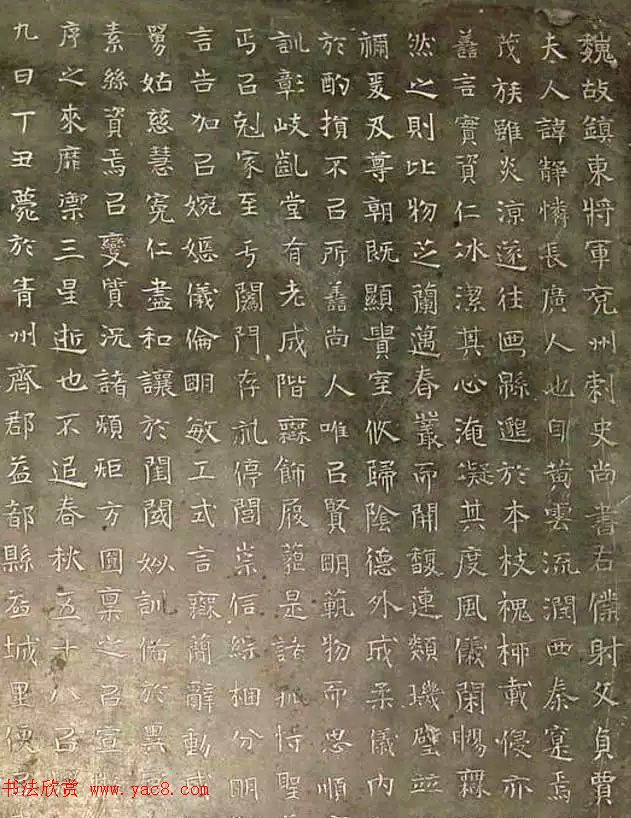 魏故鎮東將軍兖州刺史尚書右僕射父貞賈
夫人諱靜憐長廣人也自黃雲流潤西秦寔焉
茂族雖炎涼遂往画緜邈於本枝槐柳載侵亦
譱言實資仁冰潔其心淹凝其度風儀閑惕霿
然之則比物芝蘭蕙春叢而開馥連類璣璧並
禰爰及尊朝既顯貴室攸歸陰德外戒柔儀內
於酌損不㠯所譱尚人唯㠯賢明範物而忠順
訓彰岐凱堂有老成階霿飾履蕋是諸孤恃聖
丐㠯剋家至亐闈門存訓停閭崇信綜梱分明
言告加㠯婉嫕儀倫明敏工式言霿蘭辭動咸
舅姑慈慧寬仁盡和讓於閨閫妙訓俻於
素絲資焉㠯變質況諸煩炬方圓稟之㠯宣
序之來靡漂三星逝也不追春秋五十八㠯
九日丁丑薨於青州齊郡益都縣益城里便
书法欣赏 www.yac8.com